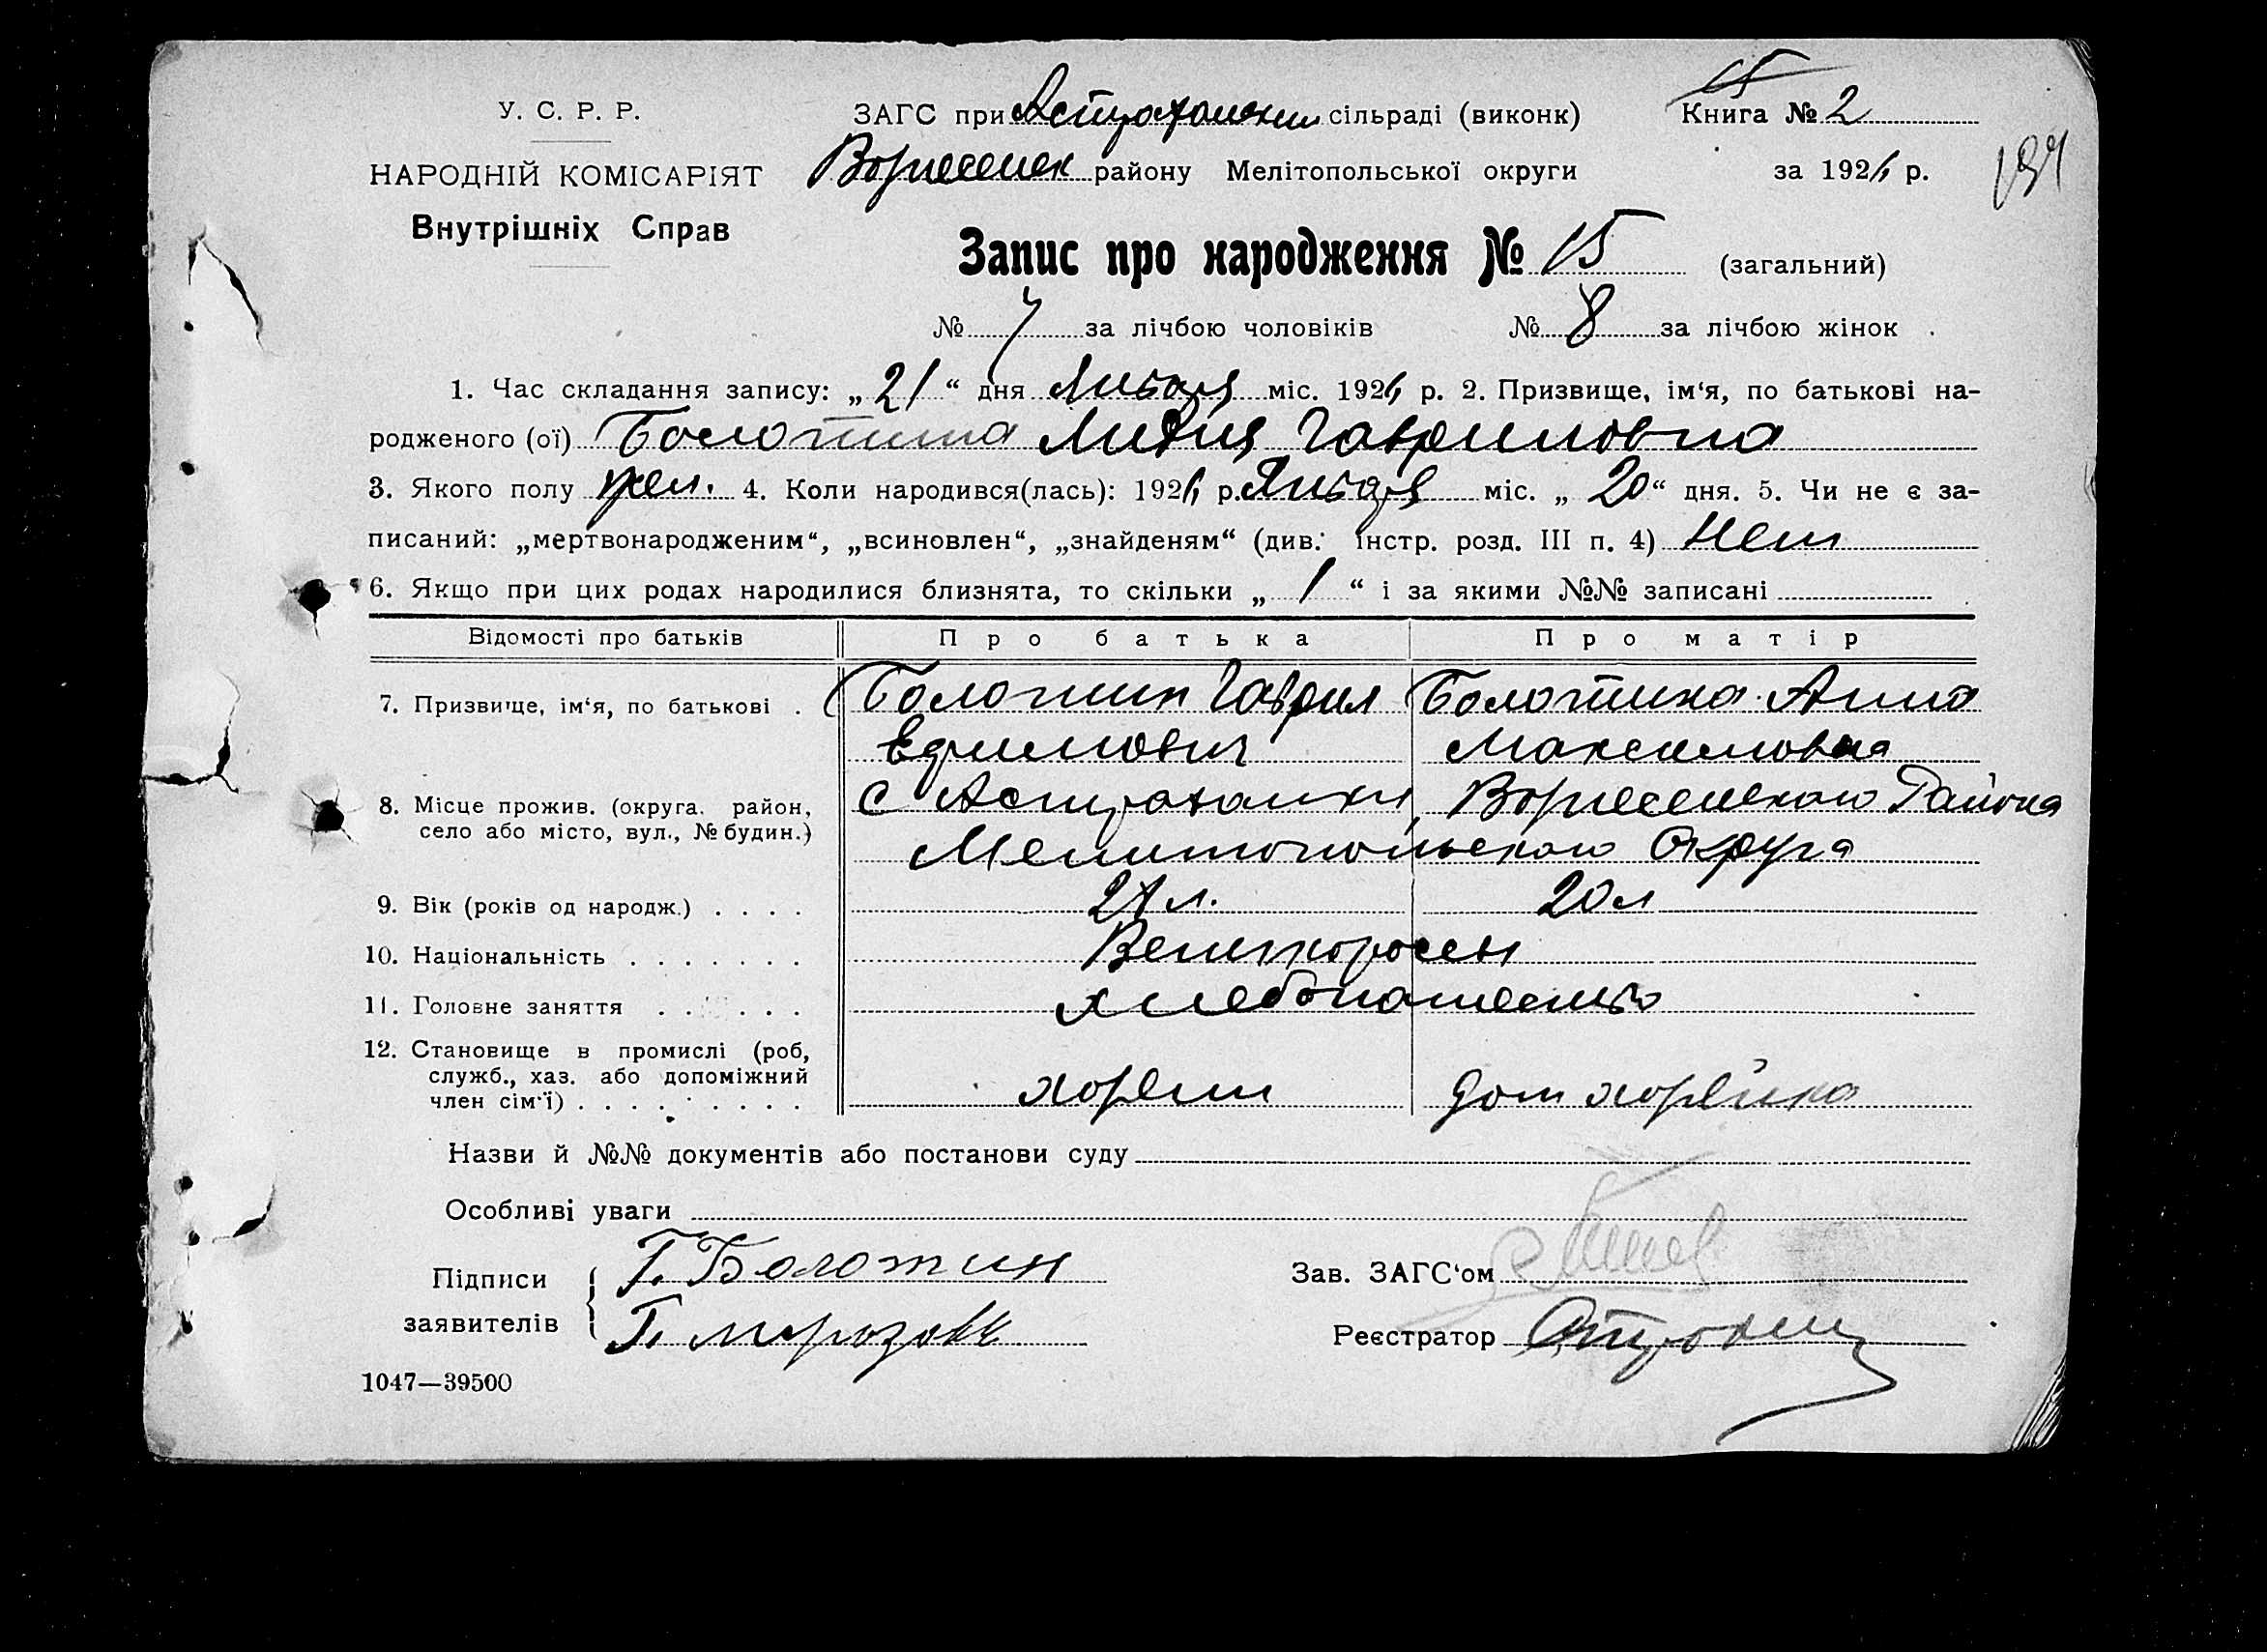 15
У. С. Р. Р. ЗАГС при Астраханском сільраді (виконк) Книга № 2
НАРОДНІЙ КОМІСАРІЯТ Вознесенск району Мелітопольської округи за 1926 р.
Внутрішніх Справ
Запис про народження № 15 (загальний)
№ 7 за лічбою чоловіків № 8 за лічбою жінок
1. Час складання запису: „ 21 “ дня Января міс. 1926 р. 2. Призвище, ім‘я, по батькові на-
родженого (ої) Болотина Лидия Гавриловна
3. Якого полу жен. 4. Коли народився(лась): 1926 р. Января міс. „ 20 “ дня. 5. Чи не є за-
писаний: „мертвонародженим“, „всиновлен“, „знайденям“ (див. інстр. розд. III п. 4) Нет
6. Якщо при цих родах народилися близнята, то скільки „ 1 “ і за якими №№ записані
Відомості про батьків Про батька Про матір
7. Призвище, ім‘я, по батькові . Болотин Гаврил Болотина Анна
Ефимович Максимовна
8. Місце прожив. (округа, район, с Астраханки, Вознесенского Района
село або місто, вул., № будин.) Мелитопольского Округа
9. Вік (років од народж.) . . . . 21 л. 20 л
10. Національність . . . . . . . Великоросы
11. Головне заняття . . . . . . хлебопашество
12. Становище в промислі (роб,
служб., хаз. або допоміжний
член сім‘ї) . . . . . . . . . хозяин дом хозяйка
Назви й №№ документів або постанови суду
Особливі уваги
Підписи Г. Болотин Зав. ЗАГС‘ом
заявителів Г. Морозов Реєстратор
1047—39500